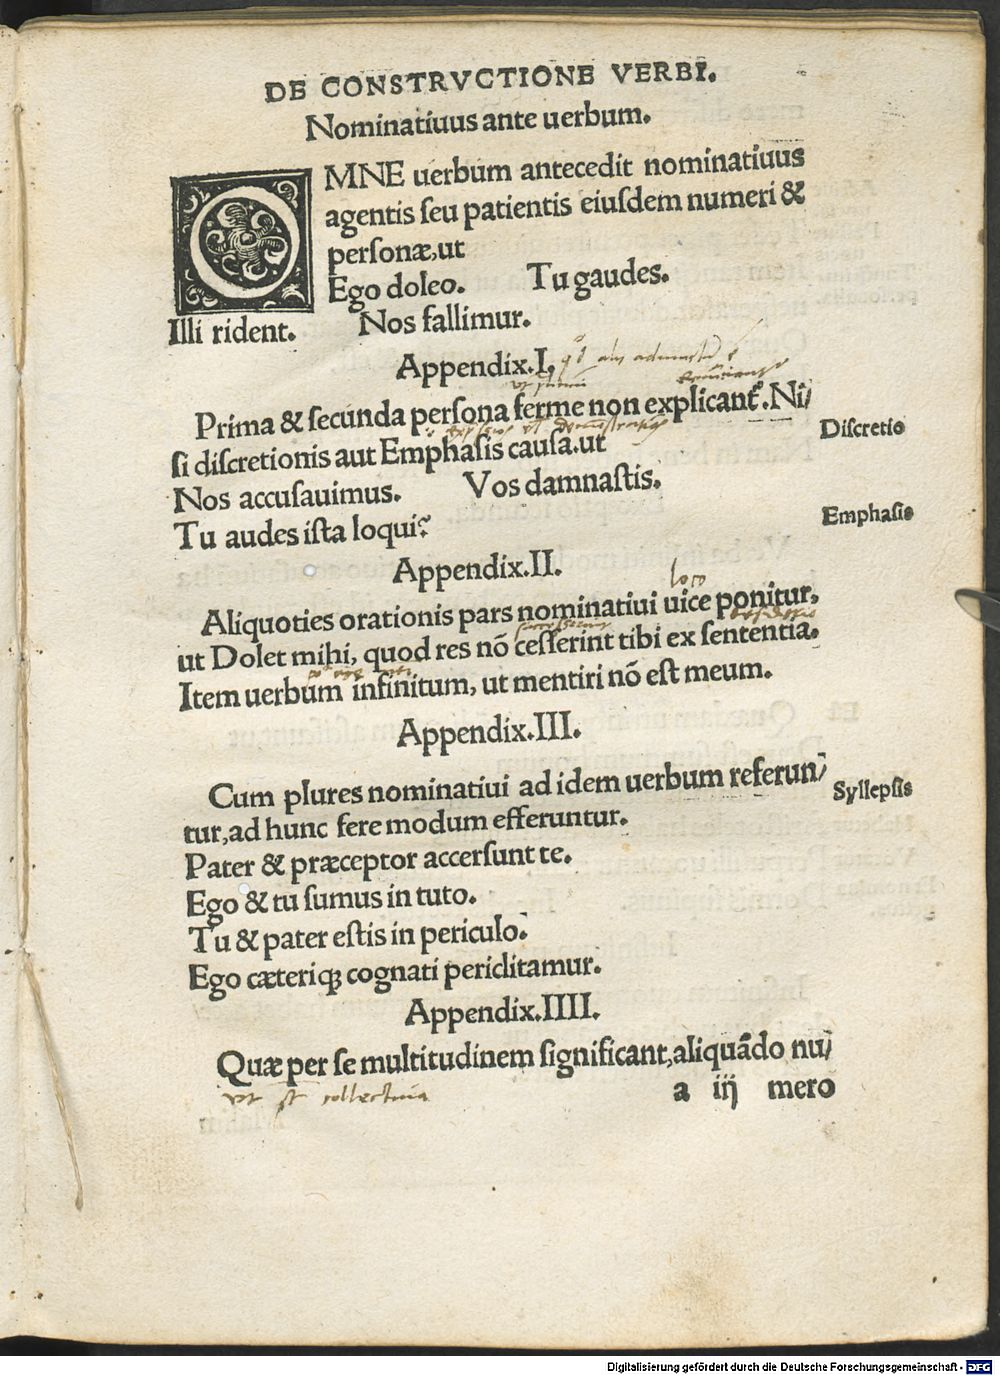 DE CONSTRVCTIONE VERBI.
Nominatiuus ante uerbum.
OMNE uerbum antecedit nominatiuus
agentis seu patientis eiusdem numeri &
personæ,ut
Ego doleo. Tu gaudes.
Illi rident. Nos fallimur.
Appendix.I.
Prima & secunda persona ferme non explicant᷑.Ni/
si discretionis aut Emphasis causa.ut
Discretio
Nos accusauimus. Vos damnastis.
Tu audes ista loqui?
Emphasis
Appendix.II.
loco
Aliquoties orationis pars nominatiui uice ponitur,
ut Dolet mihi, quod res nō cesserint tibi ex sententia.
Item uerbum infinitum, ut mentiri nō est meum.
Appendix.III.
Cum plures nominatiui ad idem uerbum referun/
Syllepsis
tur,ad hunc fere modum efferuntur.
Pater & præceptor accersunt te.
Ego & tu sumus in tuto.
Tu & pater estis in periculo.
Ego cæteriq; cognati periclitamur.
Appendix.IIII.
Quæ per se multitudinem significant,aliquādo nu/
ut st̄ collectiua
a iij mero
Digitalisierung gefördert durch die Deutsche Forschungsgemeinschaft - DFG